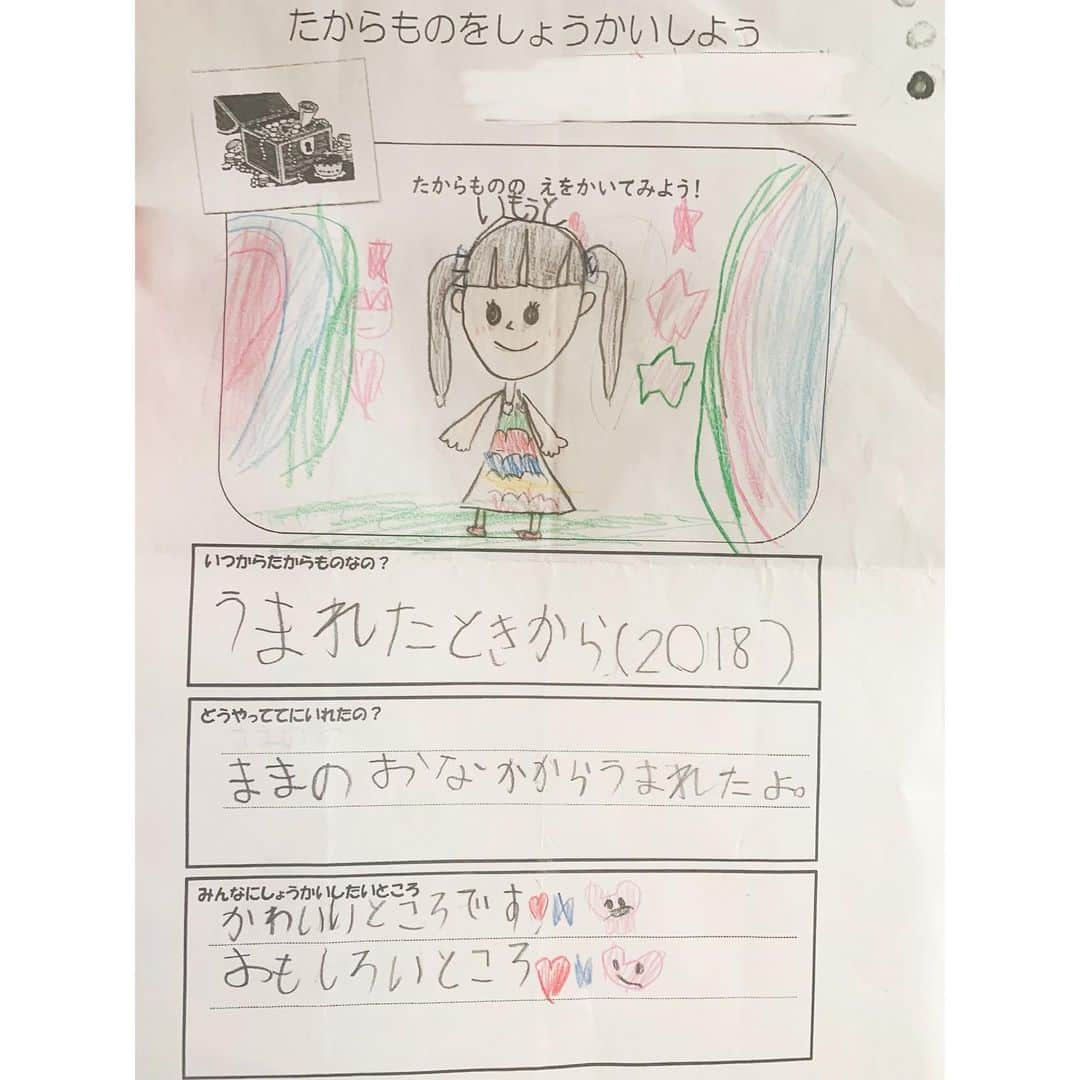 たからものをしょうかいしよう
たからものの えをかいてみよう!
いもうと
いつからたからものなの?
うまれたときから(2018)
どうやっててにいれたの?
ままの おなかからうまれたよ。
みんなにしょうかいしたいところ
かわいいところです
おもしろいところ